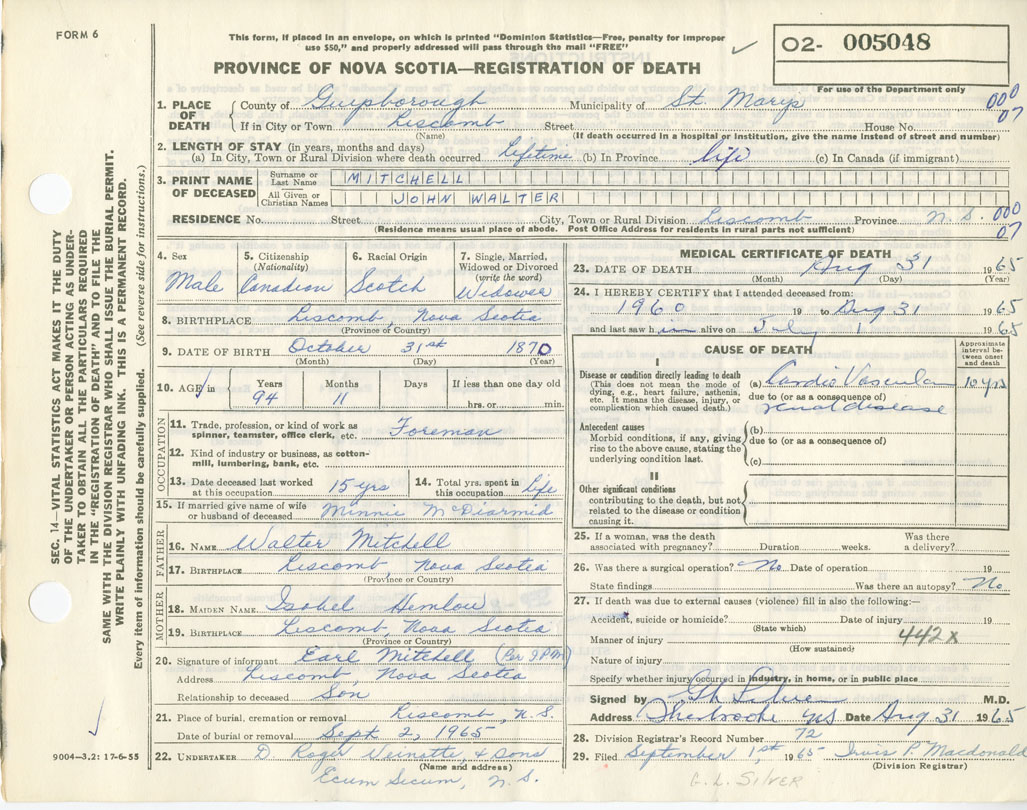 FORM 6
This form, if placed in an envelope, on which is printed "Dominion Statistics—Free, penalty for improper
use $50," and properly addressed will pass through the mail "FREE"
02- 005048
PROVINCE OF NOVA SCOTIA—REGISTRATION OF DEATH
For use of the Department only
000
07
1. PLACE OF DEATH
County of Guysborough Municipality of St. Marys
If in City or Town Liscomb Street House No.
(Name) (If death occurred in a hospital or institution, give the name instead of street and number)
2. LENGTH OF STAY (in years, months and days)
(a) In City, Town or Rural Division where death occurred Lifetime (b) In Province life (c) In Canada (if immigrant)
3. PRINT NAME OF DECEASED
Surname or Last Name MITCHELL
All Given or Christian Names JOHN WALTER
RESIDENCE No. Street City, Town or Rural Division Liscomb Province N.S. 000
07
(Residence means usual place of abode. Post Office Address for residents in rural parts not sufficient)
4. Sex
Male
5. Citizenship
(Nationality)
Canadian
6. Racial Origin
Scotch
7. Single, Married,
Widowed or Divorced
(write the word)
Widower
8. BIRTHPLACE Liscomb, Nova Scotia
(Province or Country)
9. DATE OF BIRTH October 31st 1870
(Month) (Day) (Year)
10. AGE in
Years Months Days If less than one day old
94 11 hrs. or min.
OCCUPATION
11. Trade, profession, or kind of work as
spinner, teamster, office clerk, etc. Foreman
12. Kind of industry or business, as cotton-
mill, lumbering, bank, etc.
13. Date deceased last worked
at this occupation 15 yrs
14. Total yrs. spent in
this occupation life
15. If married give name of wife
or husband of deceased Minnie McDiarmid
FATHER
16. NAME Walter Mitchell
17. BIRTHPLACE Liscomb Nova Scotia
(Province or Country)
MOTHER
18. MAIDEN NAME Isobel Hemlow
19. BIRTHPLACE Liscomb, Nova Scotia
(Province or Country)
20. Signature of informant Earl Mitchell (Per I.P.M)
Address Liscomb, Nova Scotia
Relationship to deceased Son
21. Place of burial, cremation or removal Liscomb, N.S.
Date of burial or removal Sept 2, 1965
22. UNDERTAKER D Roger & Sons
(Name and address)
Ecum Secum, N.S.
MEDICAL CERTIFICATE OF DEATH
23. DATE OF DEATH Aug 31 1965
(Month) (Day) (Year)
24. I HEREBY CERTIFY that I attended deceased from:
1960 19 to Aug 31 1965
and last saw him alive on July 1 1965
CAUSE OF DEATH
Approximate
interval be-
tween onset
and death
I
Disease or condition directly leading to death
(This does not mean the mode of
dying, e.g., heart failure, asthenia,
etc. It means the disease, injury, or
complication which caused death.)
(a) Cardio Vascular 10 yrs
due to (or as a consequence of)
renal disease
Antecedent causes
Morbid conditions, if any, giving
rise to the above cause, stating the
underlying condition last.
(b)
due to (or as a consequence of)
(c)
II
Other significant conditions
contributing to the death, but not
related to the disease or condition
causing it.
25. If a woman, was the death
associated with pregnancy? Duration weeks. Was there
a delivery?
26. Was there a surgical operation? No Date of operation 19
State findings Was there an autopsy? No
27. If death was due to external causes (violence) fill in also the following:—
Accident, suicide or homicide? Date of injury 19
(State which)
442x
Manner of injury
(How sustained)
Nature of injury
Specify whether injury occurred in industry, in home, or in public place
Signed by M.D.
Address Sherbrooke NS Date Aug 31 1965
28. Division Registrar's Record Number 72
29. Filed September 1st 1965 Irvis P. Macdonald
(Division Registrar)
G.L. SILVER
SEC. 14—VITAL STATISTICS ACT MAKES IT THE DUTY
OF THE UNDERTAKER OR PERSON ACTING AS UNDER-
TAKER TO OBTAIN ALL THE PARTICULARS REQUIRED
IN THE "REGISTRATION OF DEATH" AND TO FILE THE
SAME WITH THE DIVISION REGISTRAR WHO SHALL ISSUE THE BURIAL PERMIT.
WRITE PLAINLY WITH UNFADING INK. THIS IS A PERMANENT RECORD.
Every item of information should be carefully supplied. (See reverse side for instructions.)
9004—3.2: 17-6-55